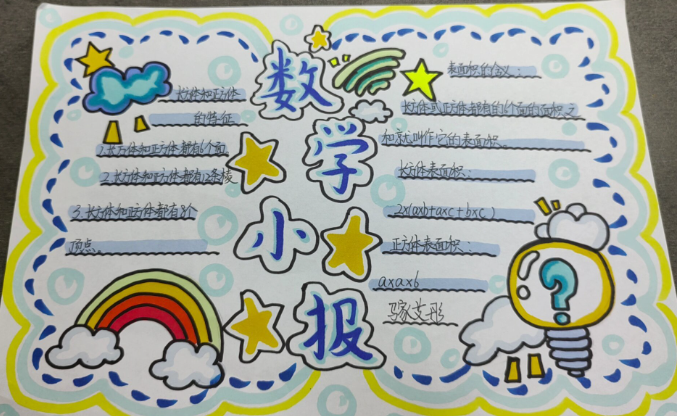 数学小报
长方体和正方体
的特征
1.长方体和正方体都有6个面
2.长方体和正方体都有12条棱
3.长方体和正方体都有8个
顶点
表面积的含义:
长方体或正方体都有的6个面的面积之
和就叫作它的表面积。
长方体表面积:
2×(a×b+a×c+b×c)
正方体表面积:
a×a×6